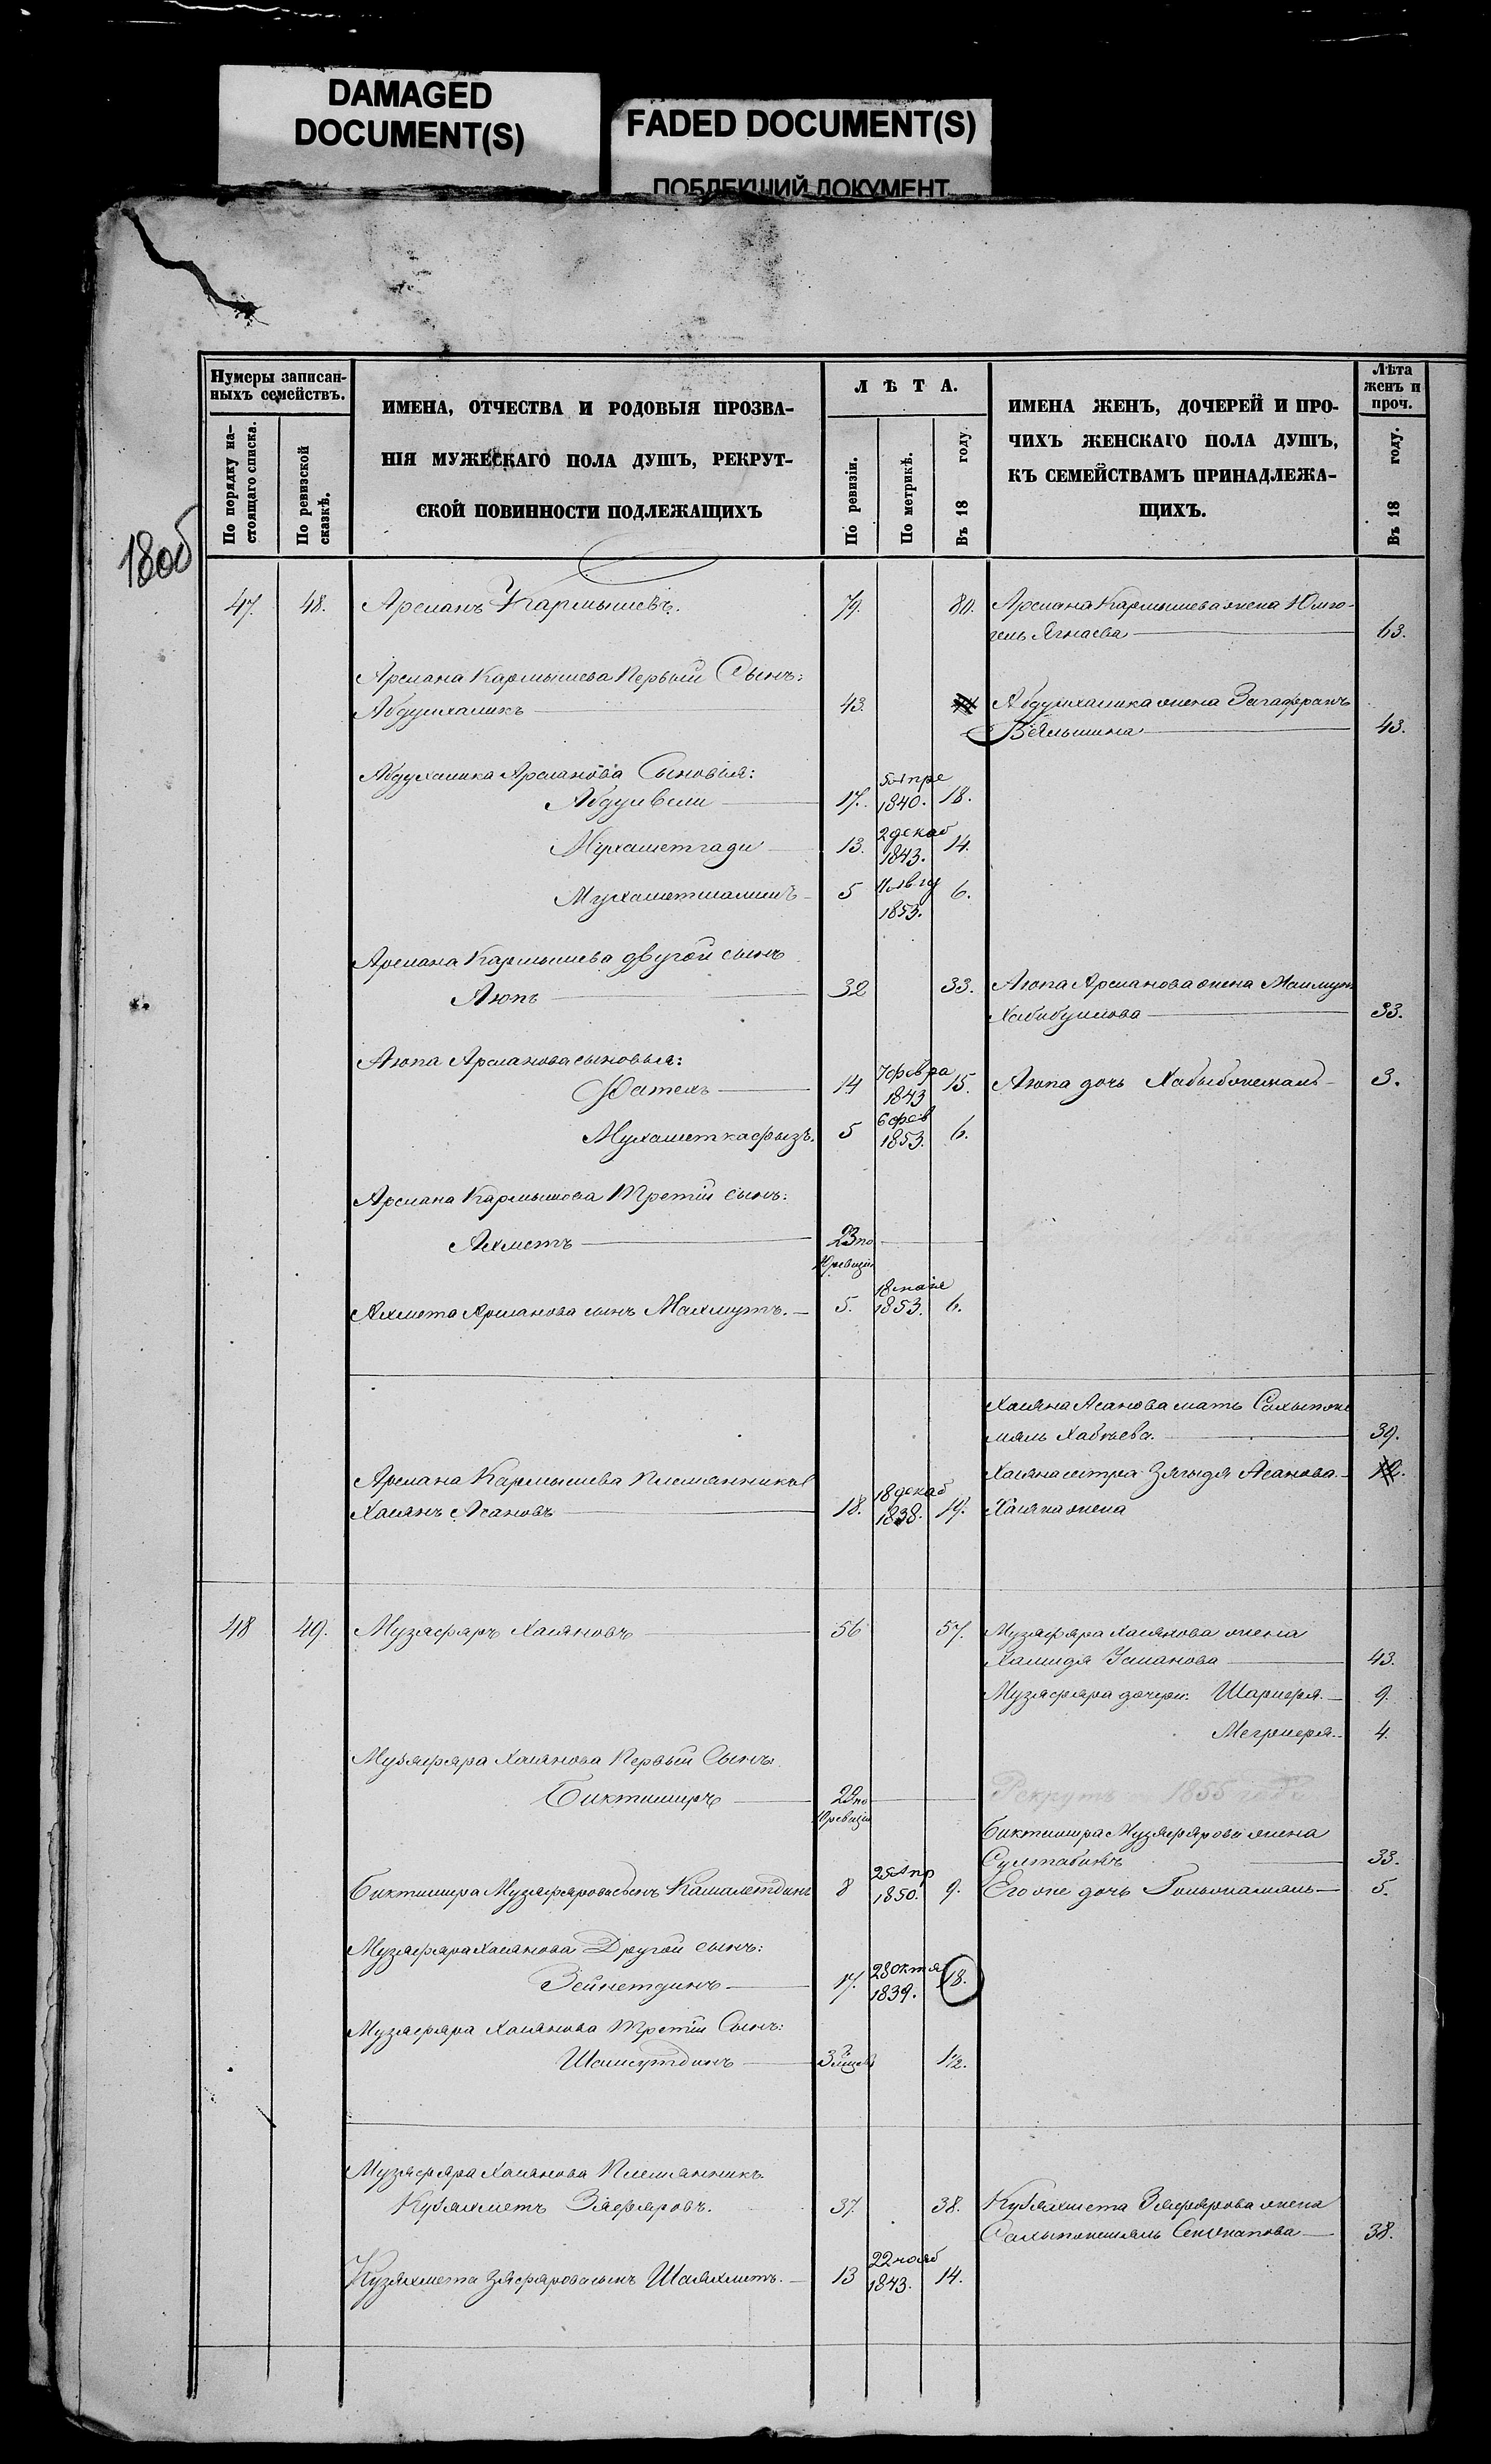 DAMAGED
DOCUMENT(S)
FADED DOCUMENT(S)
ПОБЛЕКШИЙ ДОКУМЕНТ
180об
Нумеры записан-
ныхъ семействъ.
По порядку на-
стоящаго списка.
По ревизской
сказкѣ.
ИМЕНА, ОТЧЕСТВА И РОДОВЫЯ ПРОЗВА-
НІЯ МУЖЕСКАГО ПОЛА ДУШЪ, РЕКРУТ-
СКОЙ ПОВИННОСТИ ПОДЛЕЖАЩИХЪ
ЛѢТА.
По ревизіи.
По метрикѣ.
Въ 18 году.
ИМЕНА ЖЕНЪ, ДОЧЕРЕЙ И ПРО-
ЧИХЪ ЖЕНСКАГО ПОЛА ДУШЪ,
КЪ СЕМЕЙСТВАМЪ ПРИНАДЛЕЖА-
ЩИХЪ.
Лѣта
женъ и
проч.
Въ 18 году.
47. 48. Арсланъ Кармышевъ. 79. 80. Арслана Кармышева жена
Ягнаева 63.
Арслана Кармышева Первый Сынъ:
Абдулхаликъ 43. 44 Абдулхалика жена Загаферанъ
43.
Абдулхалика Арсланова Сыновья:
Абдулвели 17. 5 Апре 1840. 18.
Мухаметгади 13. 2 декаб 1843. 14.
Мухаметшалимъ 5 1853. 6.
Арслана Кармышева другой сынъ
Аюпъ 32 33. Аюпа Арсланова жена Маймун
Хабибулова 33.
Аюпа Арсланова сыновья:
Фателъ 14 7 февра 1843 15. Аюпа дочь Хабыбожемалъ 3.
Мухаметкафызъ. 5 6 фев 1853. 6.
Арслана Кармышева Третій сынъ:
Ахметъ 23 по
10 ревизіи
Ахмета Арсланова сынъ Махмутъ. 5. 18 маія 1853. 6.
Халяна Асанова мать
мялъ Хабѣева. 39.
Арслана Кармышева Племянникъ Халяна сестра Зягыдя Асанова. 12.
Халянъ Асановъ 18. 18 декаб 1838. 19. Халяна жена
48 49. Музяфяръ Халяновъ 56 57. Музяфяра Халянова жена
Хамидя Усманова 43.
Музяфяра дочери: Шарифя. 9.
4.
Музяфяра Халянова Первый Сынъ:
Биктимиръ 29 по Рекрутъ 1855 года
10 ревизіи
Биктимира Музяфярова жена
Султабикъ 33.
Биктимира Музяфярова сынъ Камалетдинъ 8 25 Апр 1850. 9. Его же дочь 5.
Музяфяра Халянова Другой сынъ:
Зейнетдинъ 17. 28 октя 1839. 18.
Музяфяра Халянова Третій Сынъ:
Шамсутдинъ 1½.
Музяфяра Халянова Племянникъ
Кузяхметъ Зяфяровъ. 37. 38. Кузяхмета Зяфярова жена
38.
Кузяхмета Зяфярова сынъ Шаяхметъ. 13 22 нояб 1843. 14.